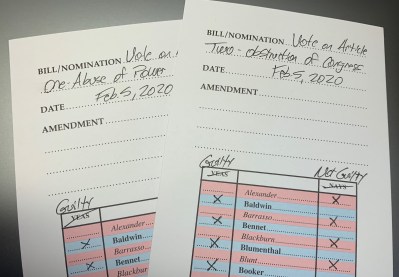 BILL/NOMINATION Vote on
One - Abuse of Power
DATE Feb 5, 2020
AMENDMENT
Guilty
YEAS
Alexander
Baldwin
Barrasso
Bennet
Blackbur
BILL/NOMINATION Vote on Article
Two - obstruction of Congress
DATE Feb 5, 2020
AMENDMENT
Guilty Not Guilty
YEAS NAYS
Alexander X
X Baldwin
Barrasso X
X Bennet
Blackburn X
X Blumenthal
Blunt X
X Booker